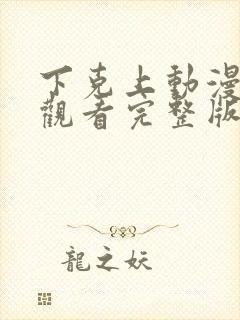 下克上動漫
觀看完整版
龍之妖